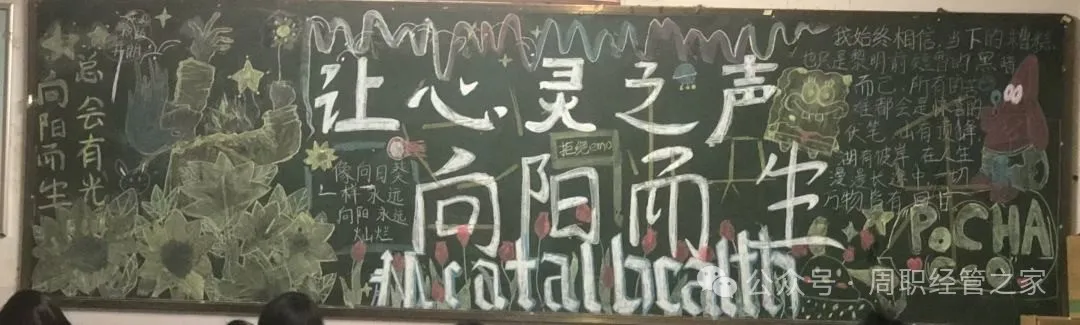 总会有光
向阳而生
让心灵之声
向阳而生
拒绝emo
像向日葵
一样永远
向阳永远
灿烂
Mental health
我始终相信,当下的糟糕
也只是黎明前短暂的黑暗
而已,所有的
难都会是惊喜的
伏笔,山有顶峰
湖有彼岸,在人生
漫漫长途中,一切
万物皆有回甘
PoCHA
公众号 周职经管之家